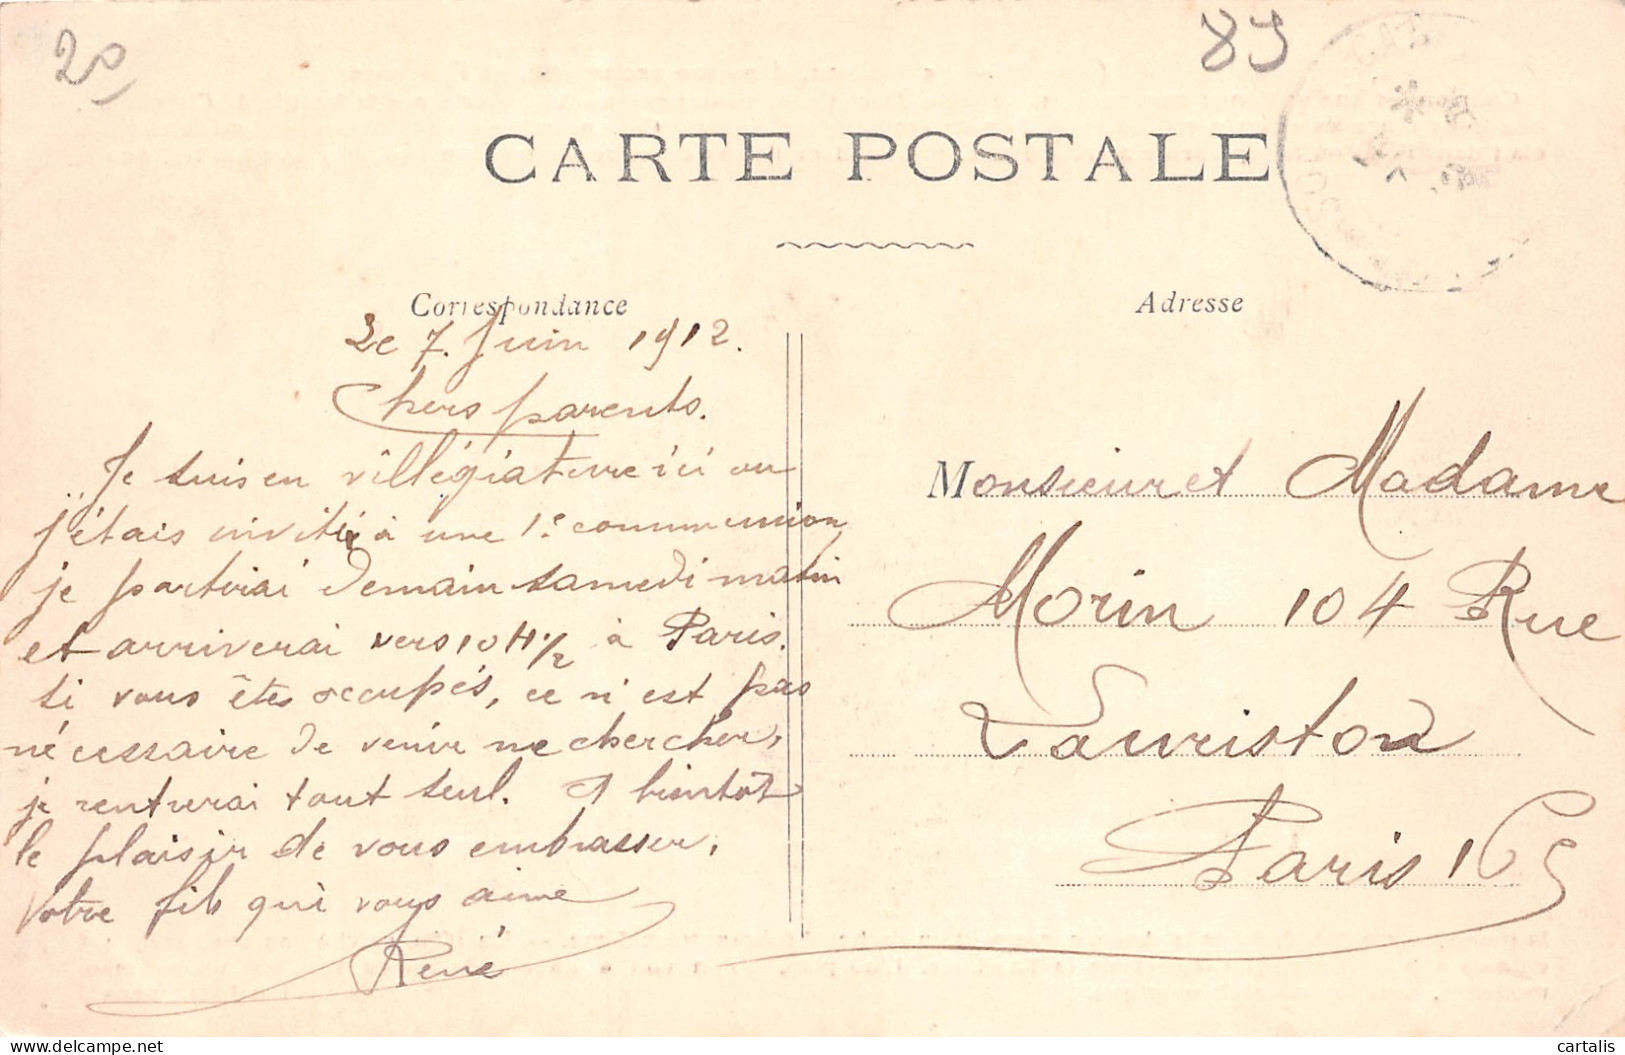 20
89
CARTE POSTALE
Correspondance
Adresse
Le 7. Juin 1912.
Chers parents.
Je suis en villégiature ici ou
j'étais invité à une 1e communion
je partirai demain samedi matin
et arriverai vers 10 H 1/2 à Paris.
si vous êtes occupés, ce n'est pas
nécessaire de venir me chercher,
je rentrerai tout seul. A bientôt
le plaisir de vous embrasser,
Votre fils qui vous aime
René
Monsieur et Madame
Morin 104 Rue
Lauriston
Paris 16e
cartalis
delcampe.net